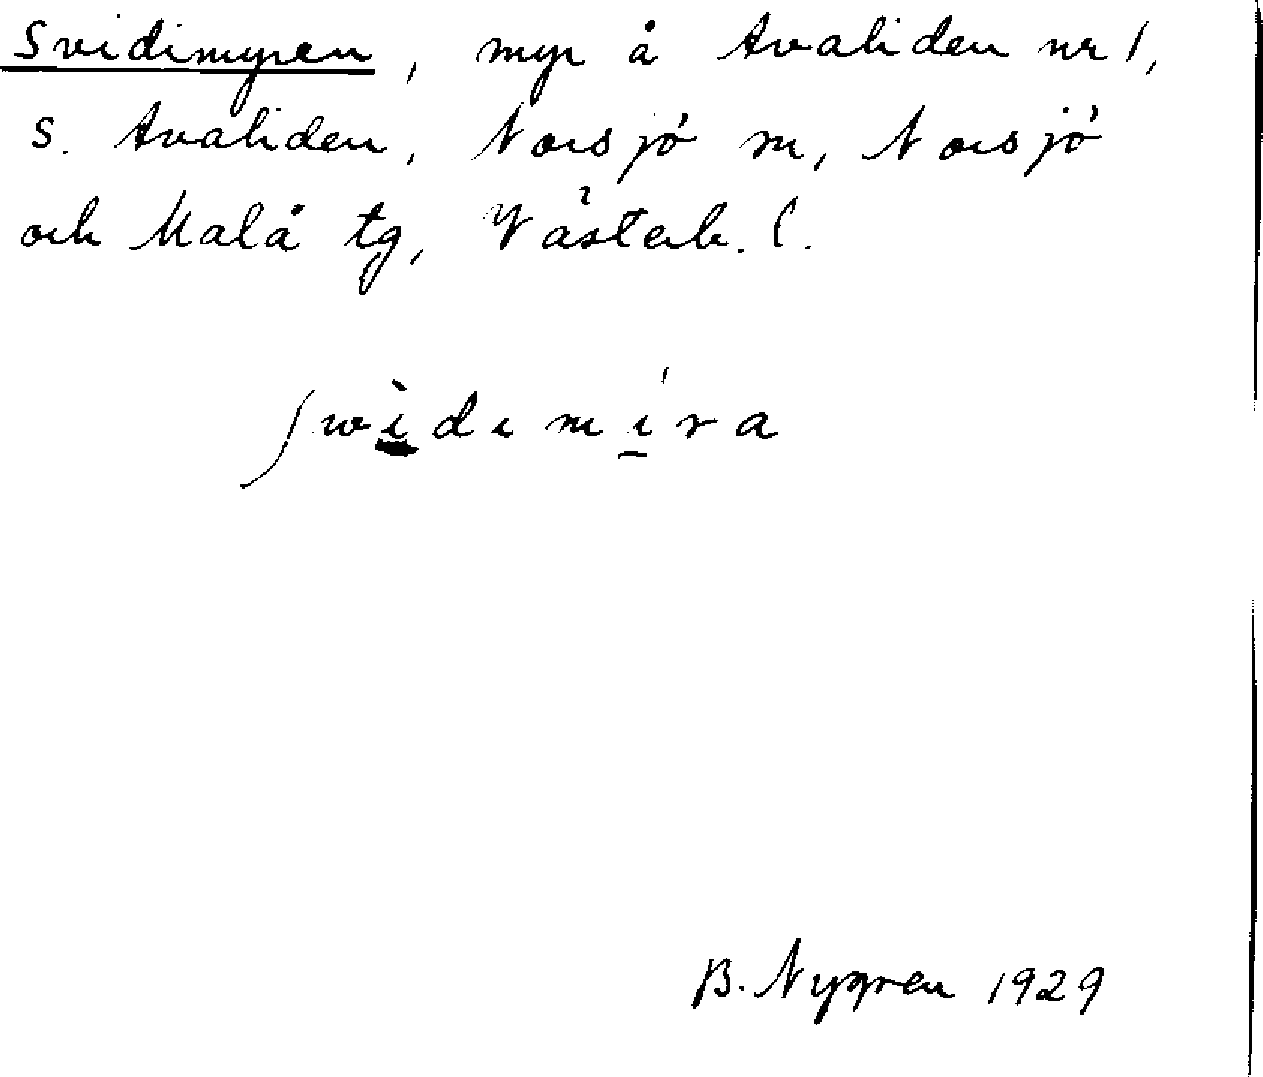 Svidimyren, myr å Avaliden nr 1,
S. Avaliden, Norsjö sn, Norsjö
och Malå tg, Västerb. l.
ʃwìdımíra
B. Nygren 1929